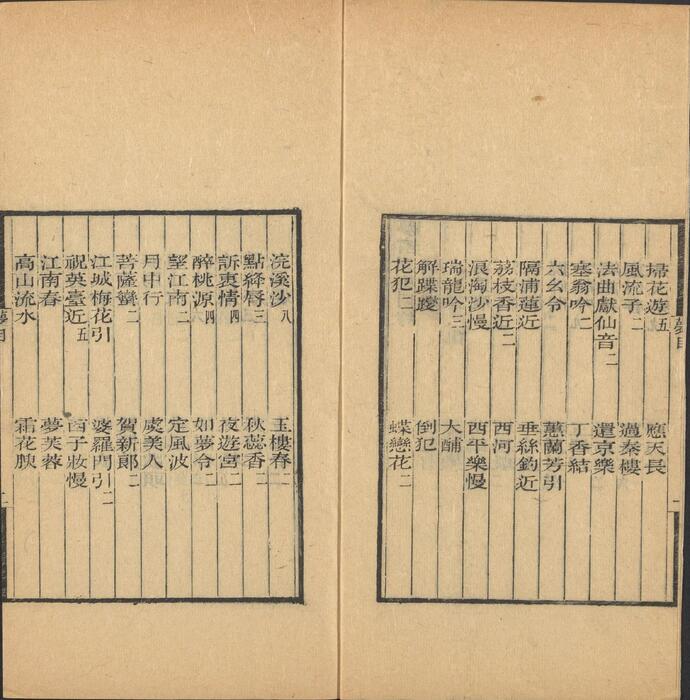 掃花遊五　應天長
風流子二　過秦樓
法曲獻仙音二　還京樂
塞翁吟二　丁香結
六幺令　蕙蘭芳引
隔浦蓮近　垂絲釣近
荔枝香近二　西河
浪淘沙慢　西平樂慢
瑞龍吟三　大酺
解蹀躞　倒犯
花犯二　蝶戀花二
浣溪沙八　玉樓春二
點絳唇三　秋蕊香二
訴衷情四　夜遊宮二
醉桃源四　如夢令二
望江南二　定風波
月中行　虞美人
菩薩蠻二　賀新郎二
江城梅花引　婆羅門引二
祝英臺近五　西子妝慢
江南春　夢芙蓉
高山流水　霜花腴
夢目
二